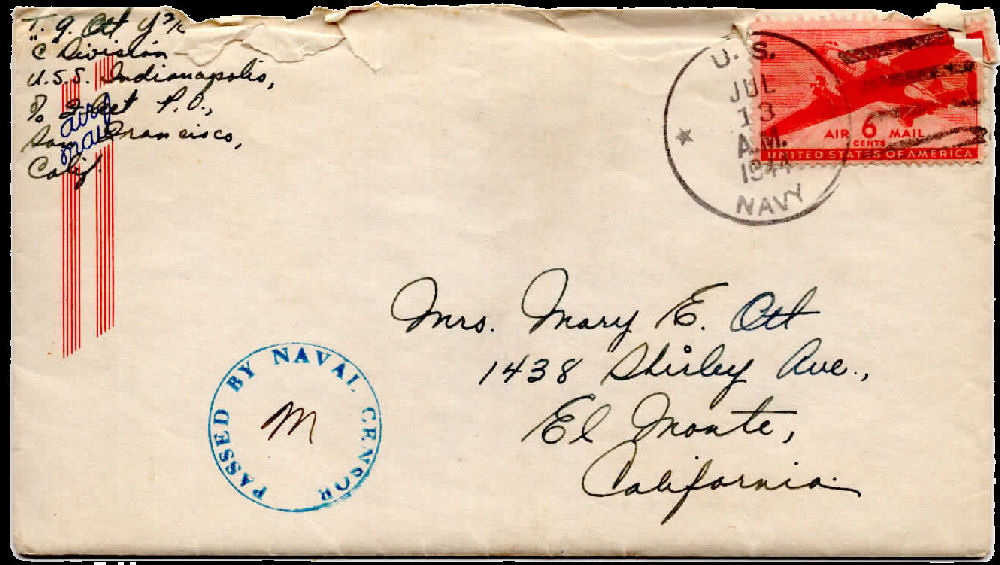 T. J. Ott Y 3/c
C Division
U.S.S. Indianapolis,
% Fleet P.O.,
San Francisco,
Calif.
air
mail
U. S.
JUL
13
A.M.
1944
NAVY
AIR 6 MAIL
CENTS
UNITED STATES OF AMERICA
Mrs. Mary E. Ott
1438 Shirley Ave.,
El Monte,
California.
PASSED BY NAVAL CENSOR
M